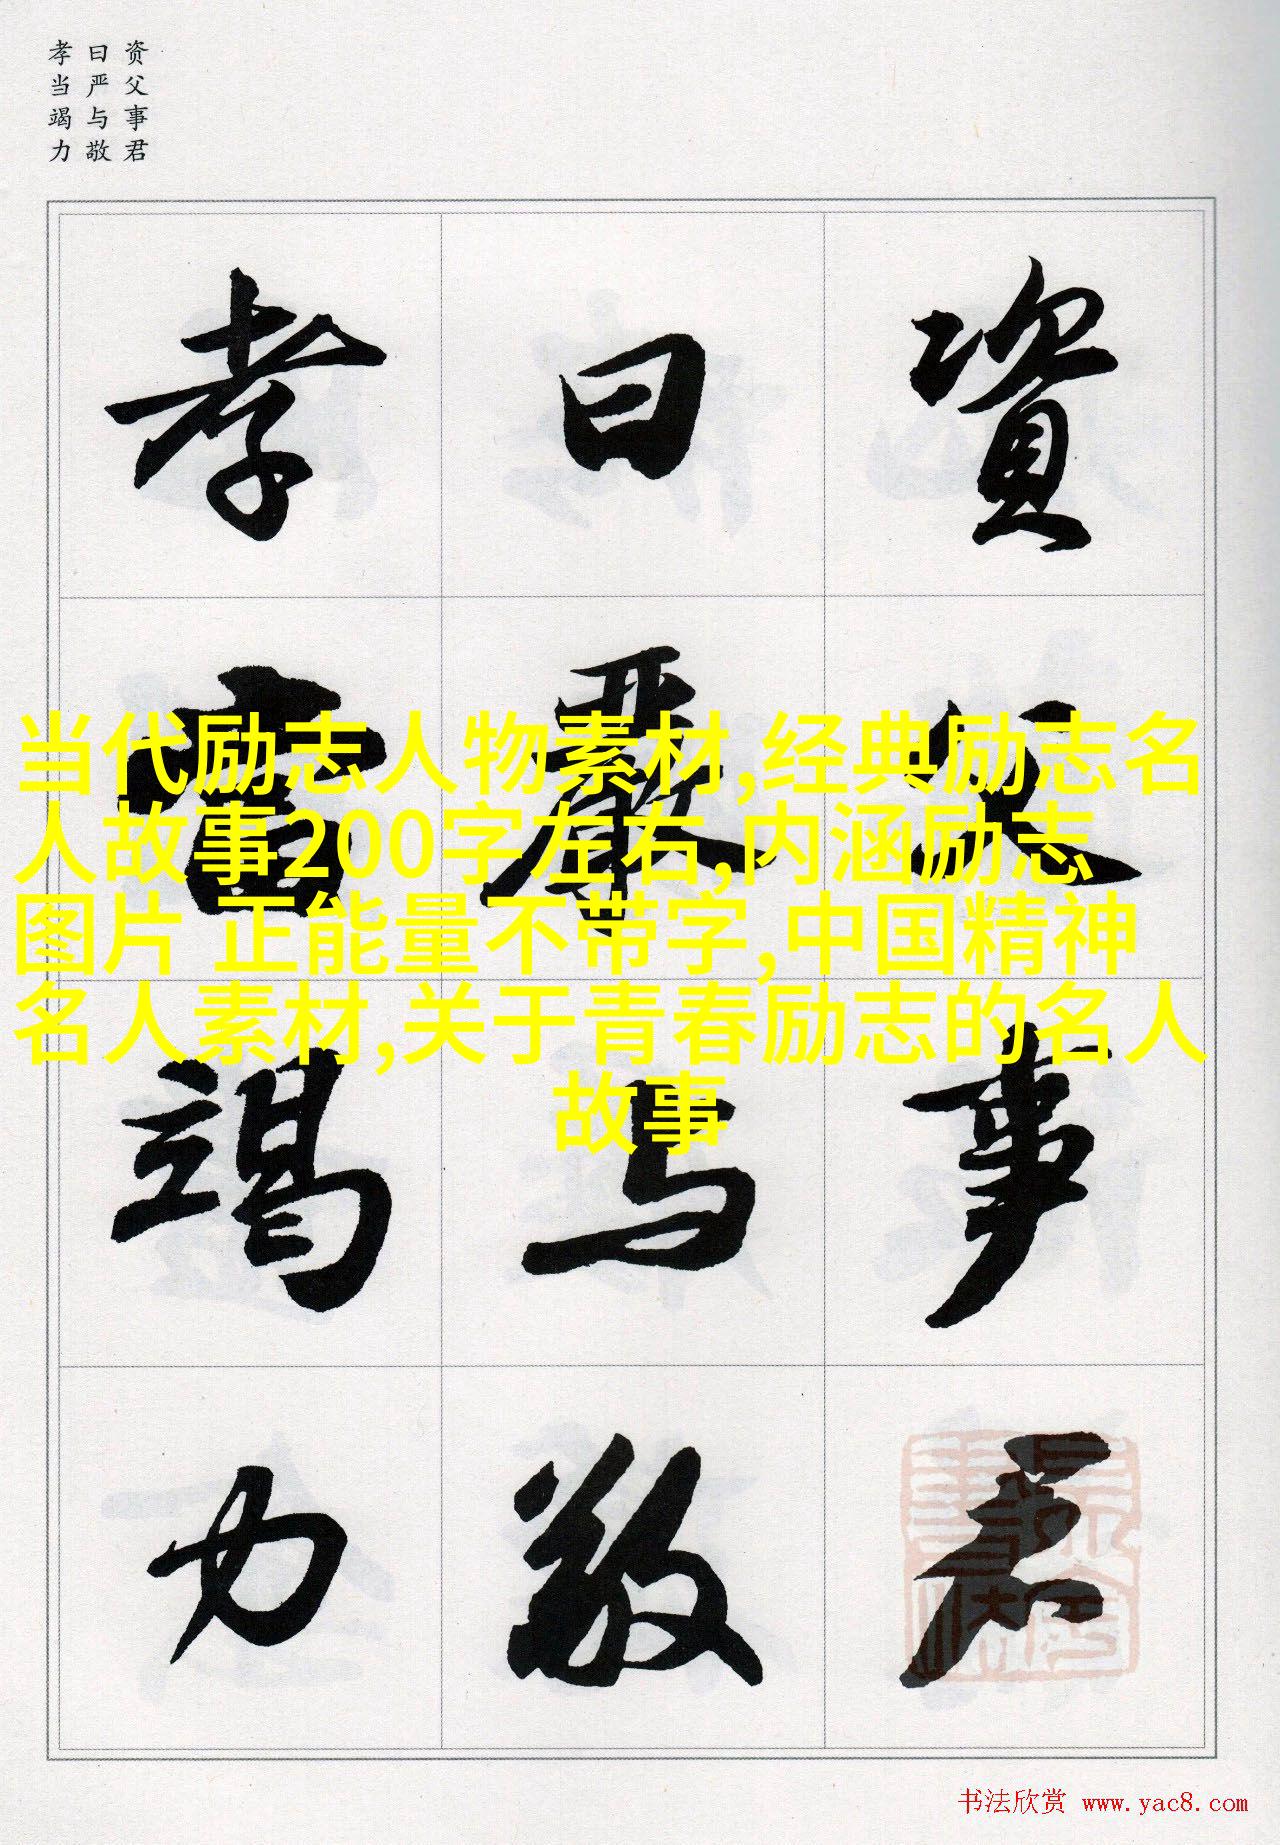 资父事君
曰严与敬
孝当竭力
資父事君
曰嚴与敬
孝當竭力
当代励志人物素材,经典励志名
人故事200字左右,内涵励志
图片 正能量不带字,中国精神
名人素材,关于青春励志的名人
故事
书法欣赏 www.yac8.com